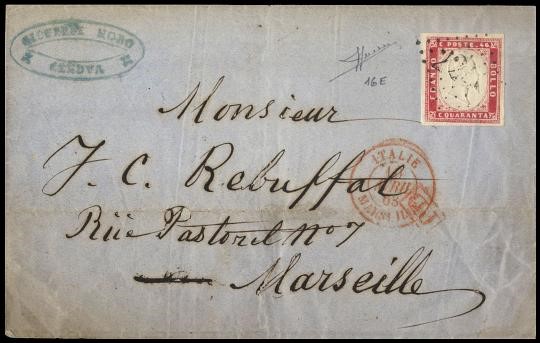 GIOVANNI MORO
GENOVA
16E
C. POSTE. 40
FRANCO
BOLLO
C. QUARANTA
Monsieur
J. C. Rebuffal
ITALIE
Rüe Pastoret No 7
Marseille